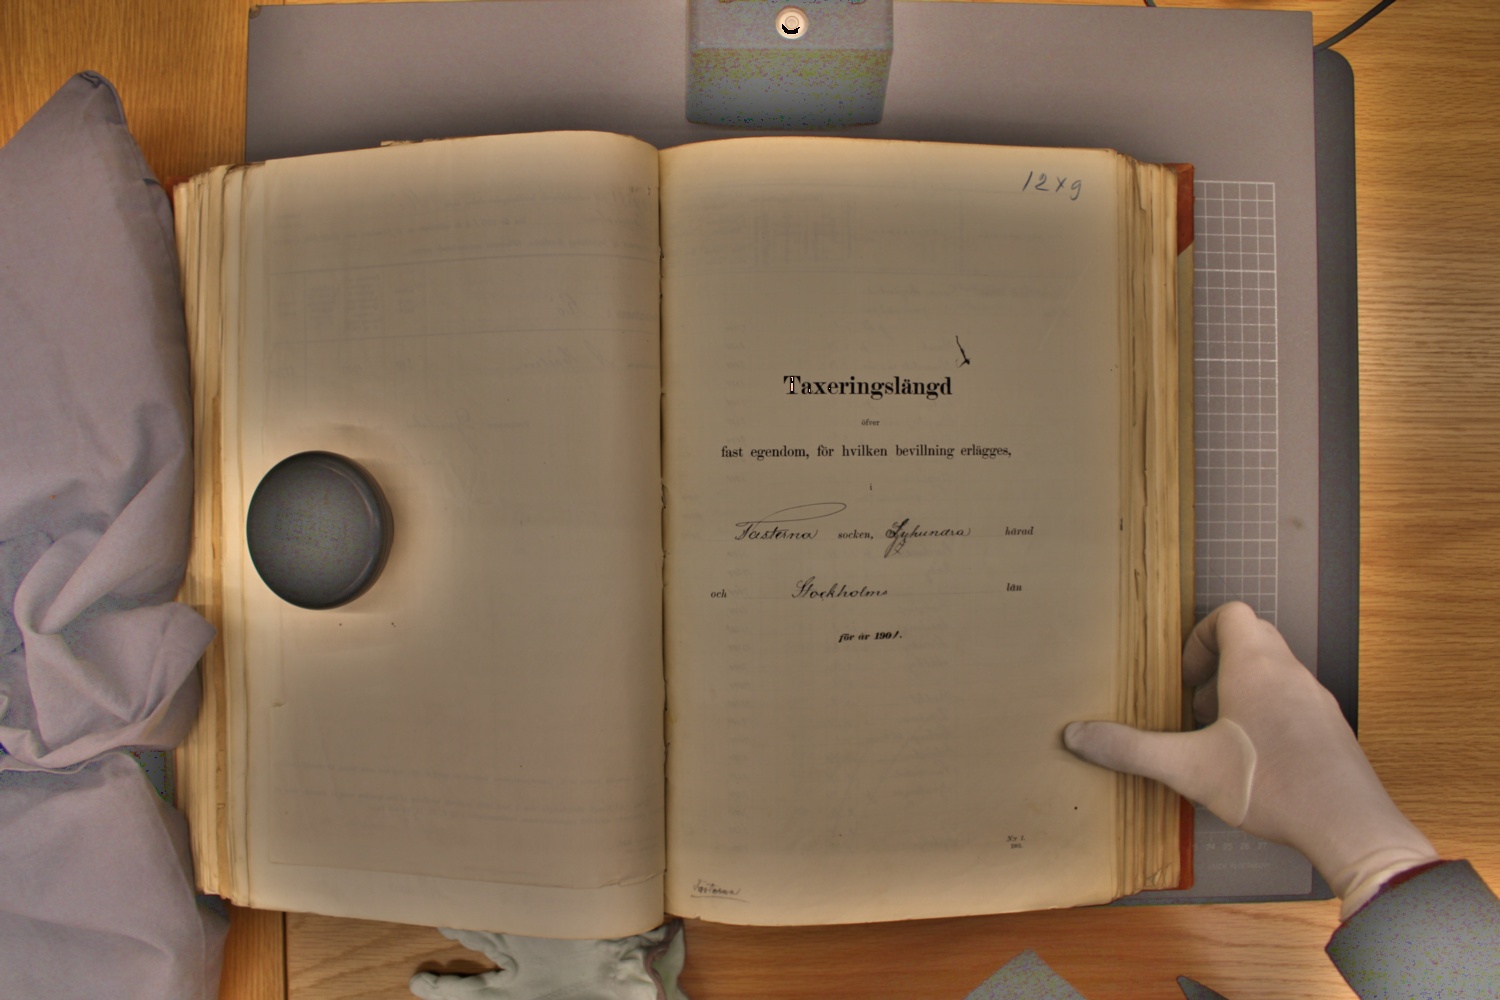 12x9
Taxeringslängd
öfver
fast egendom, för hvilken bevillning erlägges,
i
Fasterna socken, Lyhundra härad
och Stockholms län
för år 1901.
Fasterna